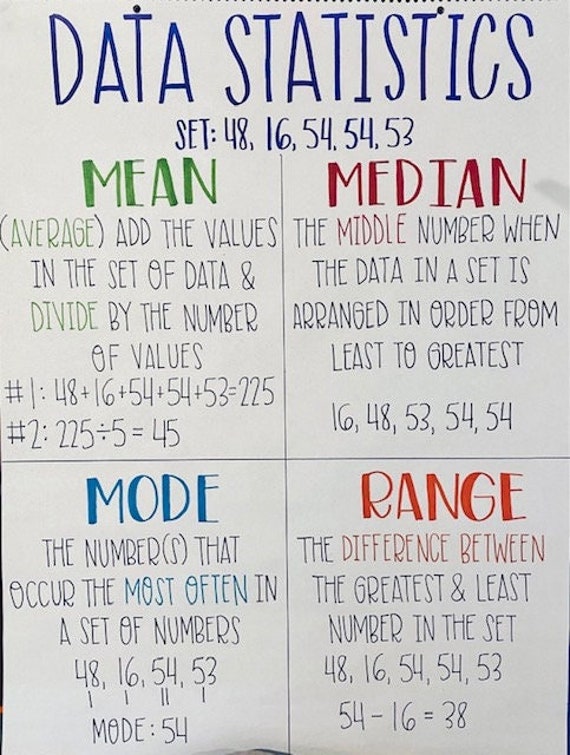 DATA STATISTICS
SET: 48, 16, 54, 54, 53
MEAN
(AVERAGE) ADD THE VALUES
IN THE SET OF DATA &
DIVIDE BY THE NUMBER
OF VALUES
#1: 48+16+54+54+53=225
#2: 225÷5 = 45
MEDIAN
THE MIDDLE NUMBER WHEN
THE DATA IN A SET IS
ARRANGED IN ORDER FROM
LEAST TO GREATEST
16, 48, 53, 54, 54
MODE
THE NUMBER(S) THAT
OCCUR THE MOST OFTEN IN
A SET OF NUMBERS
48, 16, 54, 53
I I II I
MODE: 54
RANGE
THE DIFFERENCE BETWEEN
THE GREATEST & LEAST
NUMBER IN THE SET
48, 16, 54, 54, 53
54 - 16 = 38